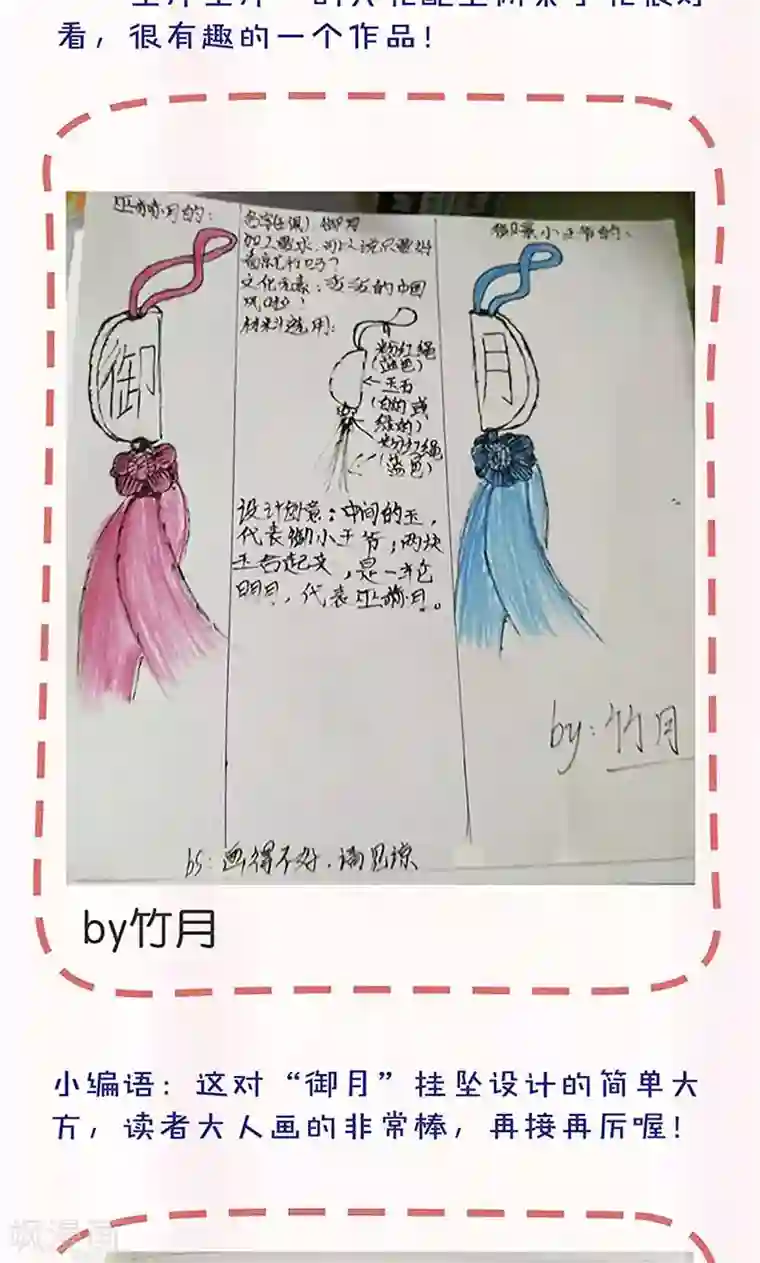 看，很有趣的一个作品！
的：
名字(玉佩) 御月
加工要求：可以说只要好
看就行吗？
文化元素：浓浓的中国
风啦！
材料选用：
粉红绳
(蓝色)
玉石
(白的或
绿的)
粉红绳
(蓝色)
设计创意：中间的玉，
代表御小王爷，两块
玉合起来，是一轮
明月，代表巫
小王爷的：
御
月
by：竹月
bs：画得不好，请见谅
by竹月
小编语：这对“御月”挂坠设计的简单大
方，读者大人画的非常棒，再接再厉喔！
飒漫画